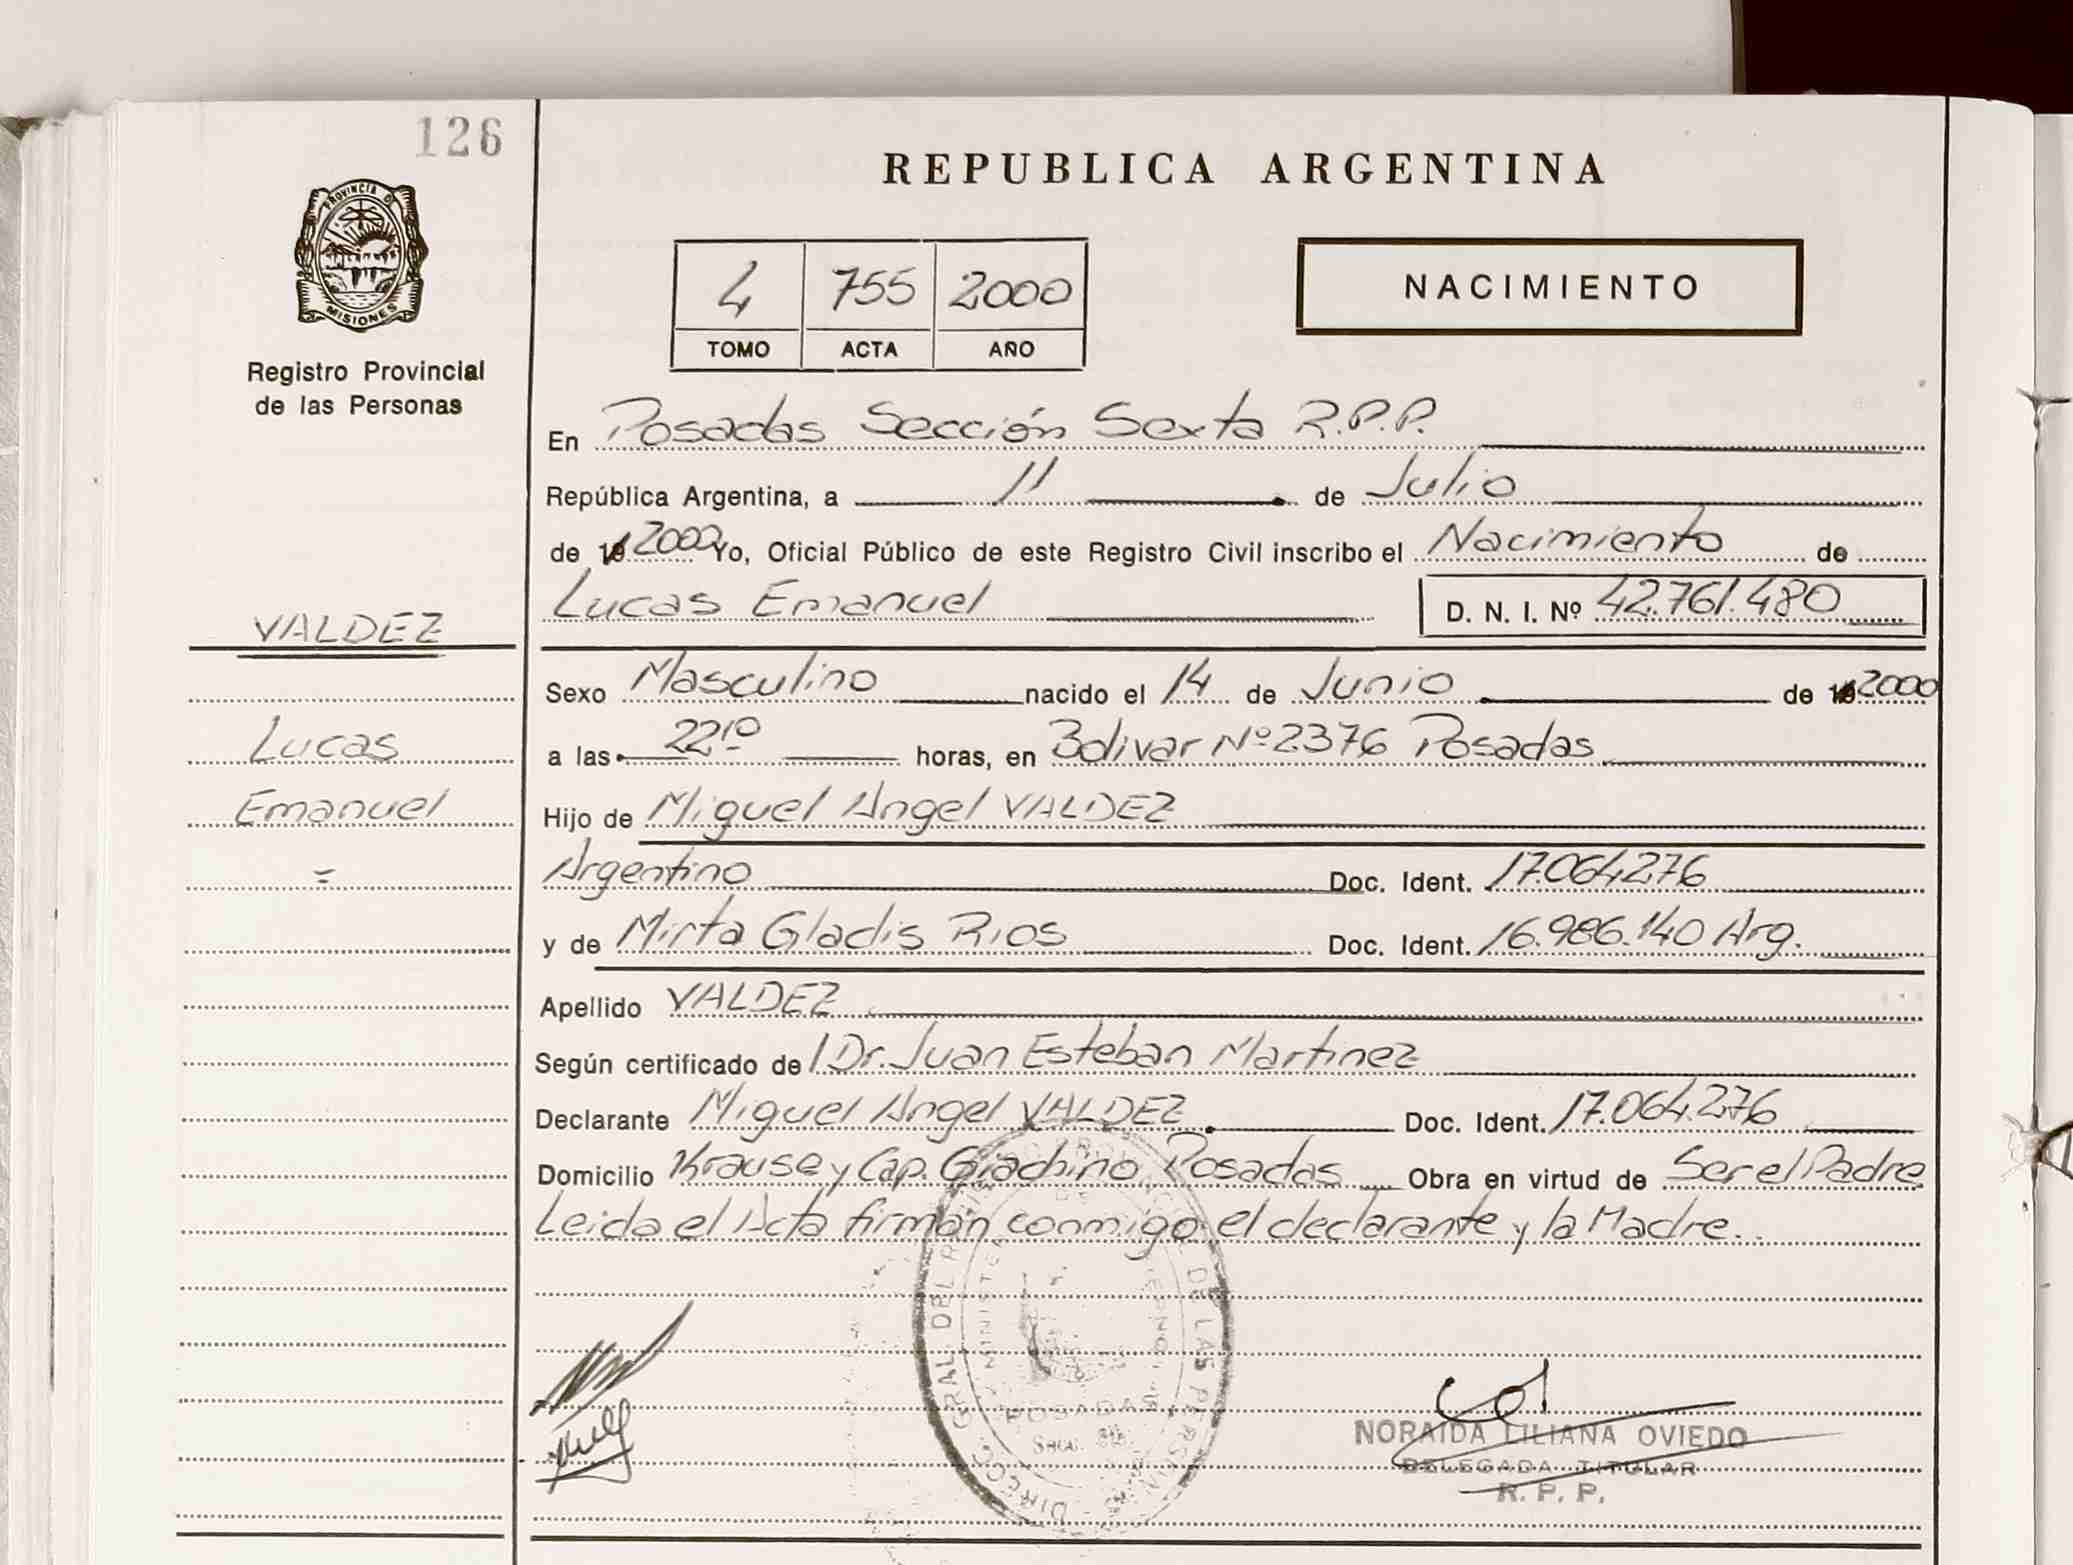 126
REPUBLICA ARGENTINA
PROVINCIA DE
MISIONES
Registro Provincial
de las Personas
4 755 2000
TOMO ACTA AÑO
NACIMIENTO
En Posadas Sección Sexta R.P.P.
República Argentina, a 11 de Julio
de 19 2000 Yo, Oficial Público de este Registro Civil inscribo el Nacimiento de
Lucas Emanuel D. N. I. Nº 42.761.480
VALDEZ
Sexo Masculino nacido el 14 de Junio de 19 2000
Lucas
a las 22¹⁰ horas, en Bolivar Nº 2376 Posadas
Emanuel
Hijo de Miguel Angel VALDEZ
=
Argentino Doc. Ident. 17.064.276
y de Mirta Gladis RIOS Doc. Ident. 16.986.140 Arg.
Apellido VALDEZ
Según certificado de l Dr. Juan Esteban Martinez
Declarante Miguel Angel VALDEZ Doc. Ident. 17.064.276
Domicilio Krause y Cap. Giachino Posadas Obra en virtud de Ser el Padre
Leida el Acta firman conmigo el declarante y la Madre.
DIRECC. GRAL. DEL DE LAS PERSONAS
POSADAS
NORAIDA LILIANA OVIEDO
DELEGADA TITULAR
R. P. P.